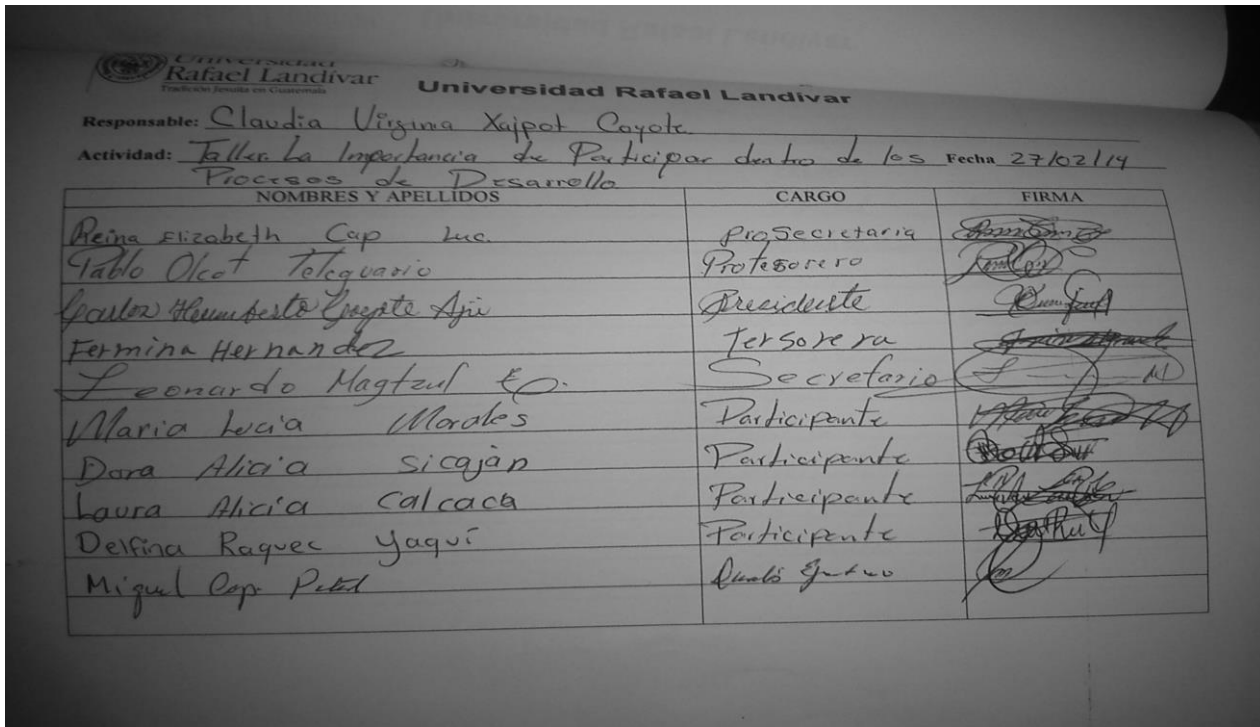 Universidad
Rafael Landívar
Tradición Jesuita en Guatemala
Universidad Rafael Landívar
Responsable: Claudia Virginia Xajpot Coyote
Actividad: Taller La Importancia de Participar dentro de los Fecha 27/02/14
Procesos de Desarrollo
NOMBRES Y APELLIDOS CARGO FIRMA
Reina Elizabeth Cap Luc. ProSecretaria
Pablo Olcot Teleguario Protesorero
Humberto Ajú Presidente
Fermina Hernandez Tersorera
Leonardo Magtzul Secretario
Maria Lucia Morales Participante
Dora Alicia Sicaján Participante
Laura Alicia Calcaca Participante
Delfina Raquec Yaquí Participante
Miguel Cap